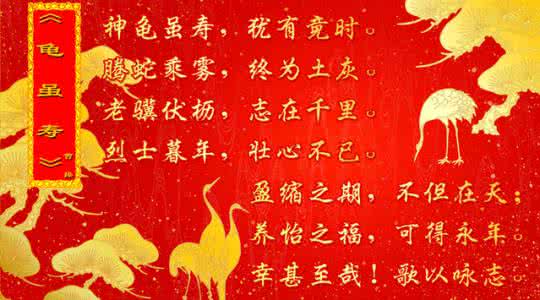 《龟虽寿》
曹操
神龟虽寿，犹有竟时。
腾蛇乘雾，终为土灰。
老骥伏枥，志在千里。
烈士暮年，壮心不已。
盈缩之期，不但在天；
养怡之福，可得永年。
幸甚至哉！歌以咏志。